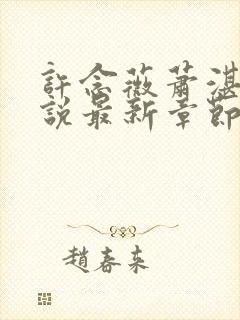 許念薇蕭湛
說最新章節
趙春來